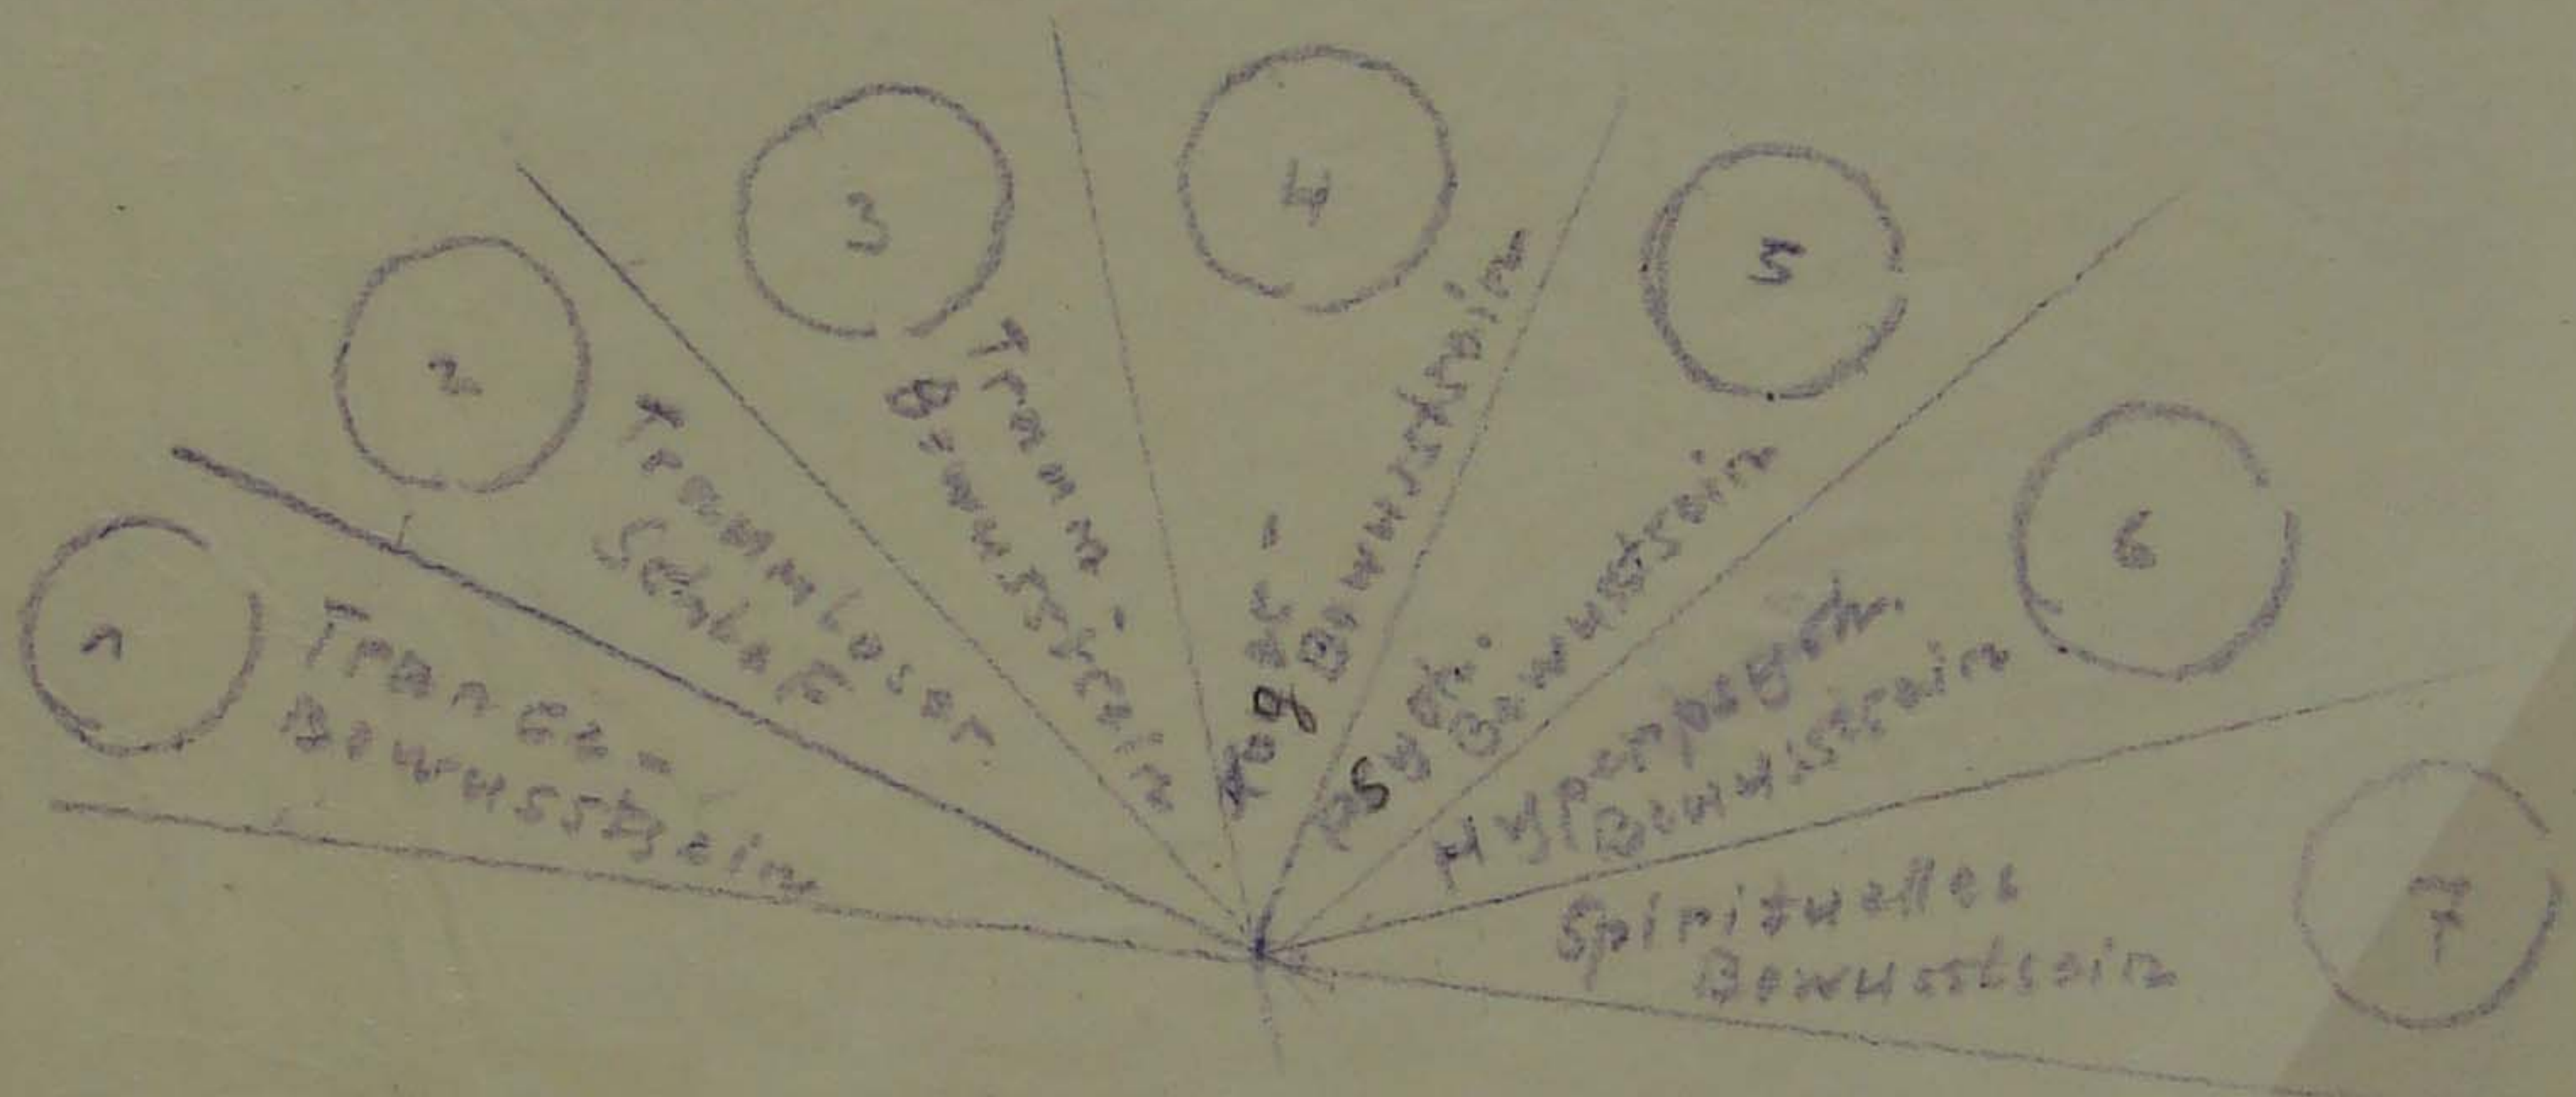 1
Trance-
Bewusstsein
2
Traumloser
Schlaf
3
Traum-
Bewusstsein
4
Tages-
Bewusstsein
5
Psych.
Bewusstsein
6
Hyperpsych.
Bewusstsein
7
Spirituelles
Bewusstsein